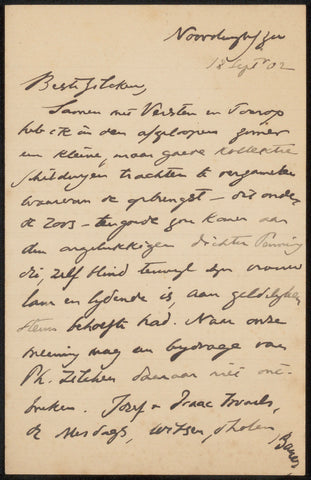 Noordwijk a/zee
18 Sept 02
Beste Zilcken,
Samen met Verster en Toorop
heb ik in den afgeloopen zomer
een kleine, maar goede kollektie
schilderijen trachten te vergaren
waarvan de opbrengst – dit onder
de roos – ten goede zou komen aan
den ongelukkigen dichter
die, zelf blind terwijl zijn vrouw
lam en lijdende is, aan geldelijken
steun behoefte had. Naar onze
meening mag een bijdrage van
Ph. Zilcken daaraan niet ont-
breken. Jozef en Isaac Israels,
de Mesdags, Witsen,
Bauer,